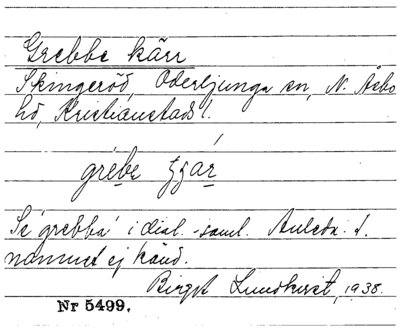 Grebbe kärr
Skingeröd, Oderljunga sn, N. Åsbo
hd, Kristianstads l.
grebe
Se 'grebba' i dial.-saml. Anledn. t.
namnet ej känd.
Birgit Lundkvist, 1938.
Nr 5499.